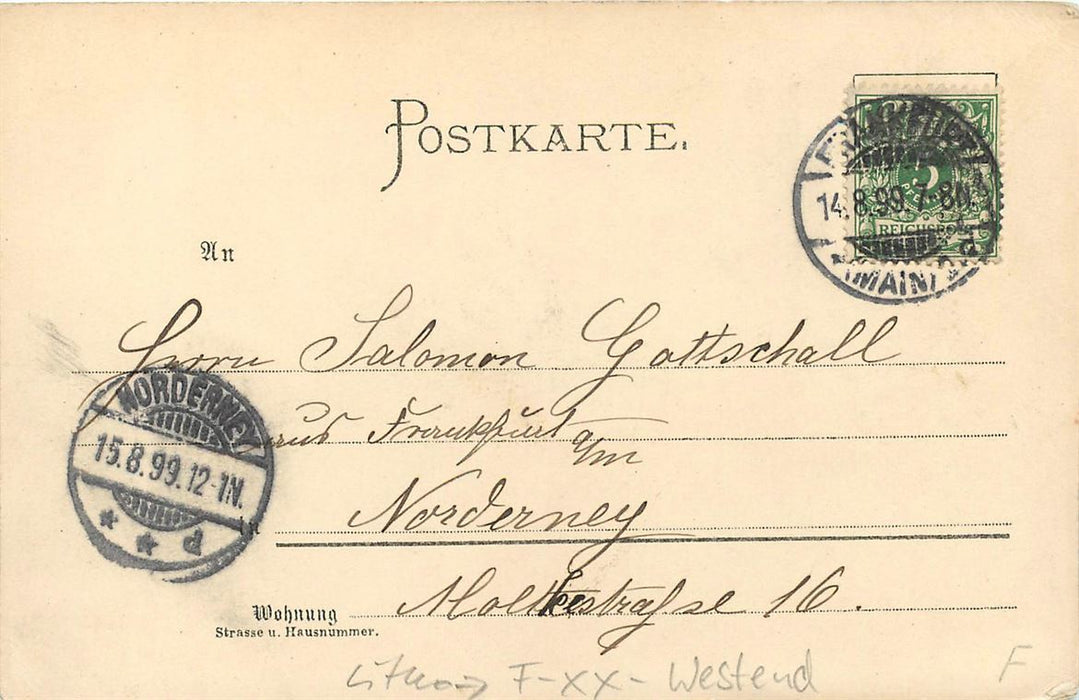 POSTKARTE.
FRANKFURT
14.8.99.7-8N.
(MAIN)
5
REICHSPOST
An
Herrn Salomon Gottschall
aus Frankfurt a/m
NORDERNEY
15.8.99.12-1N.
* * d
in Norderney
Wohnung Moltkestraße 16.
Strasse u. Hausnummer.
Litho → F-XX- Westend F